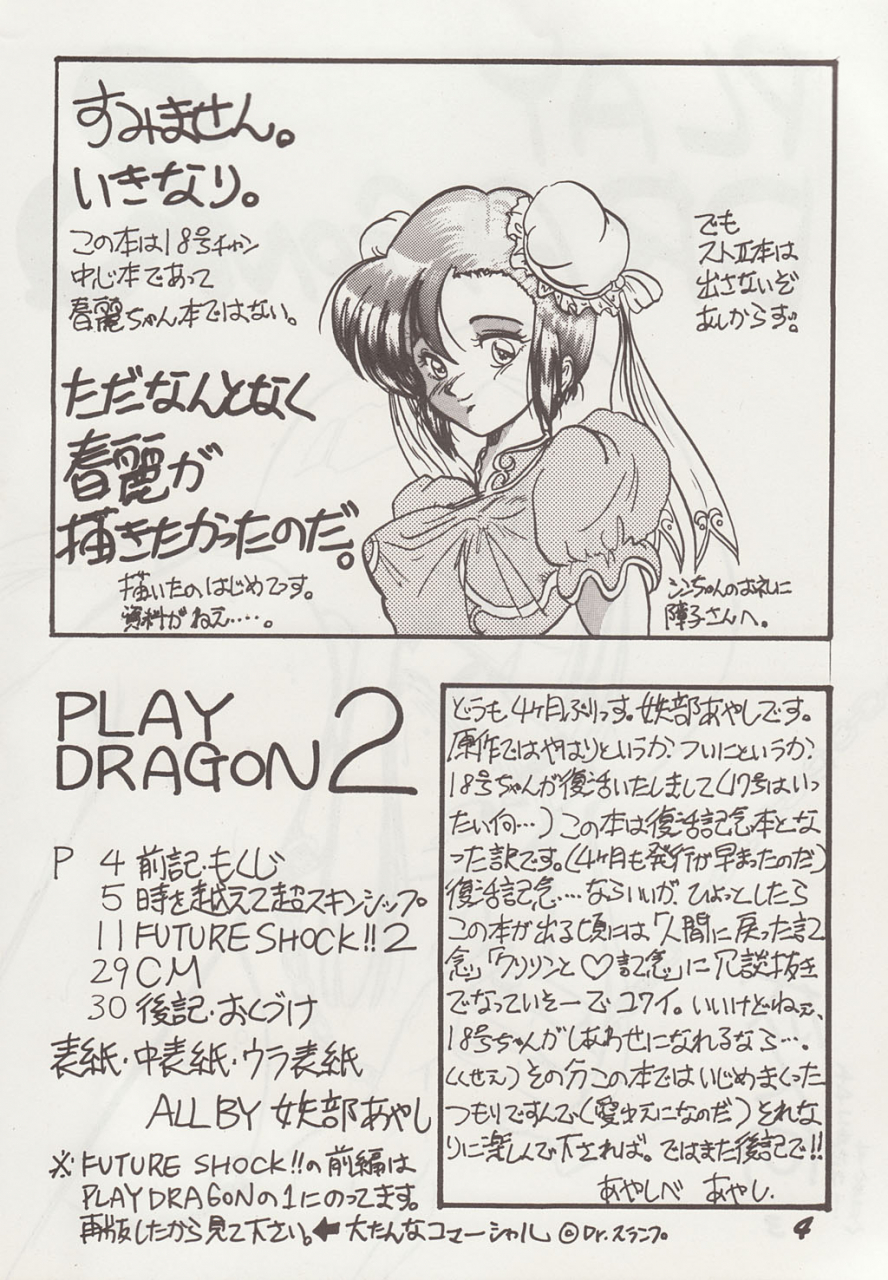 すみません。
いきなり。
この本は18号チャン
中心本であって
春麗ちゃん本ではない。
ただなんとなく
春麗が
描きたかったのだ。
描いたのはじめてっす。
資料がねえ‥‥。
でも
ストⅡ本は
出さないぞ
あしからず。
シンちゃんのお礼に
障子さんへ。
PLAY
DRAGON 2
P 4 前記・もくじ
5 時を越えて超スキンシップ。
11 FUTURE SHOCK!! 2
29 CM
30 後記・おくづけ
表紙・中表紙・ウラ表紙
ALL BY 妖部あやし
※ FUTURE SHOCK!!の前編は
PLAY DRAGONの1にのってます。
再版したから見て下さい。← 大たんなコマーシャル ©Dr.スランプ
どうも4ヶ月ぶりっす。妖部あやしです。
原作ではやはりというか?ついにというか?
18号ちゃんが復活いたしまして(17号はいっ
たい何…)この本は復活記念本とな
った訳です。(4ヶ月も発行が早まったのだ)
復活記念…ならいいが、ひょっとしたら
この本が出る頃には「人間に戻った記
念」「クリリンと♡記念」に冗談抜き
でなっていそーでコワイ。いいけどねぇ、
18号ちゃんがしあわせになれるなら…。
(くせえ)その分この本ではいじめまくった
つもりですんで(愛ゆえになのだ)それな
りに楽しんで下されば。ではまた後記で!!
あやしべ あやし.
4